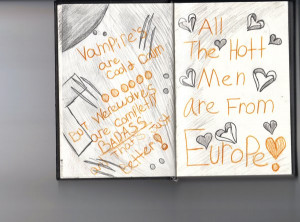 Vampire's
are
Cool & Calm
but Werewolves
are completly
BADASS
That's Just
better!
All
The Hott
Men
are From
Europe!